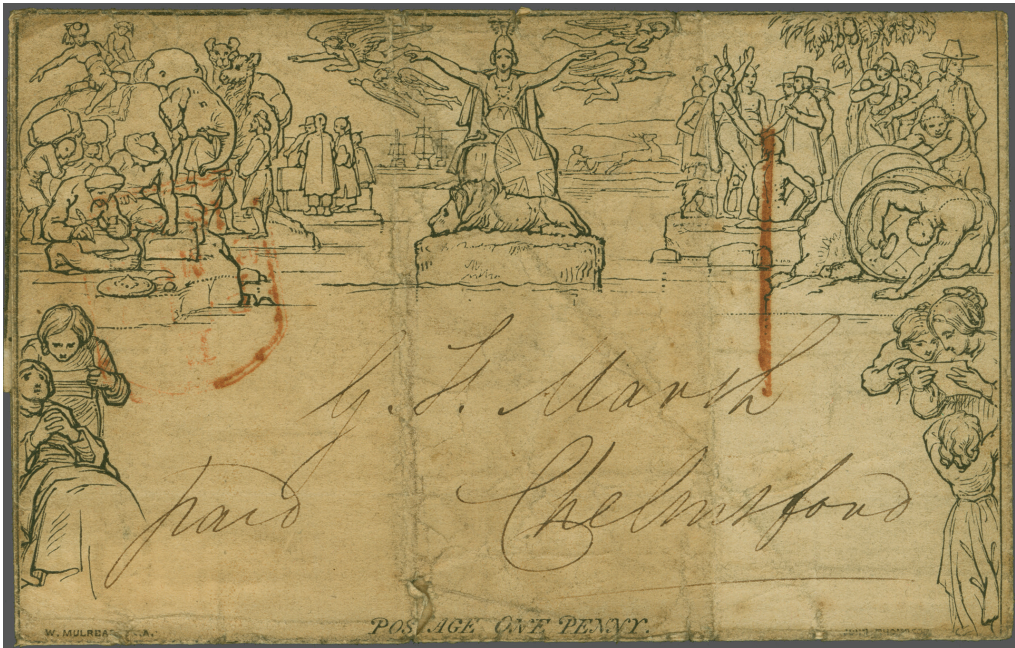 G. F. Marsh
paid Chelmsford
W. MULREA
POSTAGE ONE PENNY.